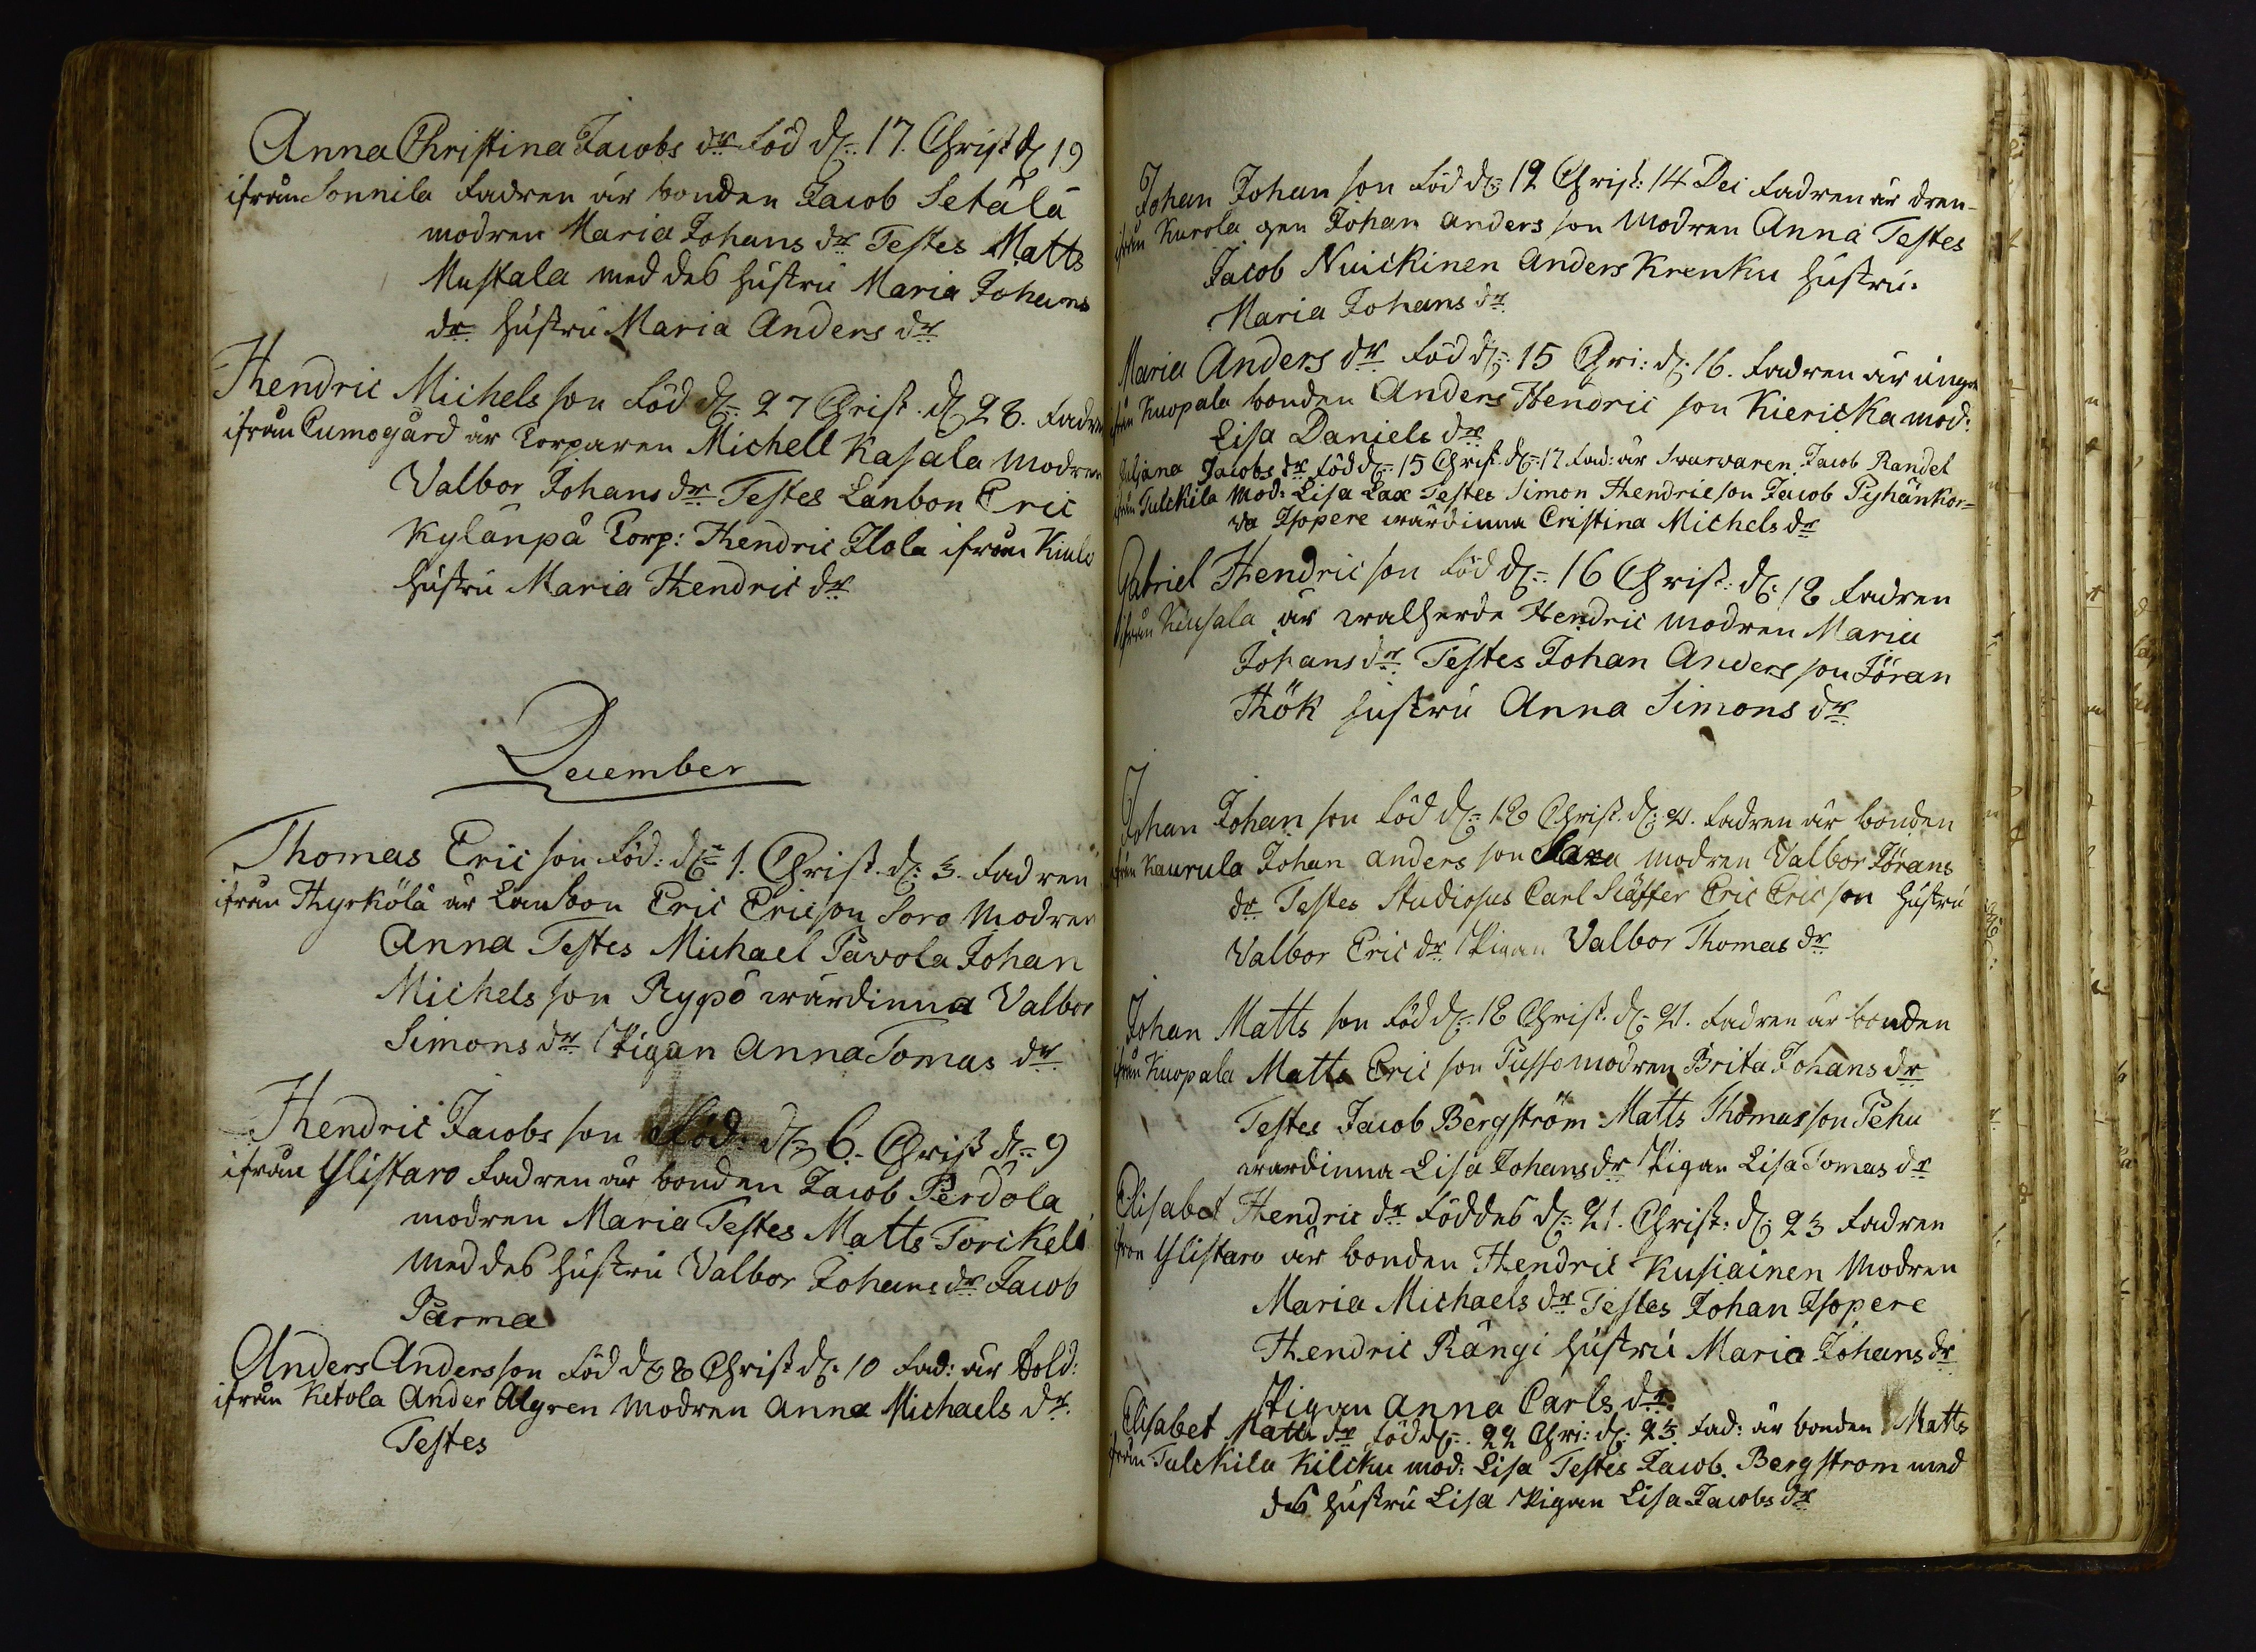 Anna Christina Jacobs dr föd d. 17. Christ d 19
ifrån Sonnila fadren är bonden Jacob Setälä
modren Maria Johans dr Testes Matts
Mustala med des hustru Maria Johans
dr hustru Maria Anders dr
Hendric Michels son föd d. 27 Christ. d 28. fadren
ifrån Cumogård är Torparen Michell Kasala modren
Valbor Johans dr Testes Lanbon Eric
Kylänpä Torp: Hendric Ilola ifrån Kiulo
hustru Maria Hendric dr
December
Thomas Eric son föd: d. 1. Christ. d. 3. fadren
ifrån Hyrkölä är Lanbon Eric Ericson Soro modren
Anna Testes Michael Pavola Johan
Michels son Rypö wärdinna Valbor
Simons dr Pigan Anna Tomas dr
Hendric Jacobs son föd. d. 6. Christ d. 9
ifrån Ylistaro fadren är bonden Jacob Perdola
modren Maria Testes Matts Torikela
med des hustru Valbor Johans dr Jacob
Parma
Anders Andersson föd d. 8 Christ d. 10 fad: är Sold:
ifrån Ketola Ander Algren modren Anna Michaels dr.
Testes
Johan Johan son föd d. 12 Christ: 14 Dei fadren är dren-
ifrån Kurola gen Johan Anders son modren Anna Testes
Jacob Nuickinen Anders Krenku hustru.
Maria Johans dr
Maria Anders dr föd d. 15 Chri: d. 16. fadren är unga
ifrån Kuopala bonden Anders Hendric son Kiericka mod:
Lisa Daniels dr
Juliana Jacobs dr född d. 15 Christ. d. 17 fad: är Swarvaren Jacob Randel
ifrån Tulckila mod: Lisa Lax Testes Simon Hendricson Jacob Pyhänkor=
va Isopere wärdinna Cristina Michels dr
Gabriel Hendric son föd d. 16 Christ: d. 18 fadren
ifrån Keusala är walherde Hendric modren Maria
Johans dr Testes Johan Anders son Jöran
Hök hustru Anna Simons dr
Johan Johan son föd d. 18 Christ. d. 21. fadren är bonden
ifrån Kaurula Johan Anders son modren Valbor Jörans
dr Testes Studiosus Carl Släffer Eric Eric son hustru
Valbor Eric dr Pigan Valbor Thomas dr
Johan Matts son föd d. 18 Christ. d. 21. fadren är bonden
ifrån Kuopala Matts Eric son Pusso modren Brita Johans dr
Testes Jacob Bergström Matts Thomas son Pehu
wärdinna Lisa Johans dr Pigan Lisa Tomas dr
Elisabet Hendric dr föddes d. 21. Christ: d. 23 fadren
ifrån Ylistaro är bonden Hendric Kusiainen modren
Maria Michaels dr Testes Johan Isopere
Hendric Rängi hustru Maria Johans dr
Pigan Anna Carls dr
Elisabet Matts dr född. 22 Chri: d. 23. fad: är bonden Matts
ifrån Tulckila Kilcku mod: Lisa Testes Jacob. Bergstrom med
des hustru Lisa Pigan Lisa Jacobs dr